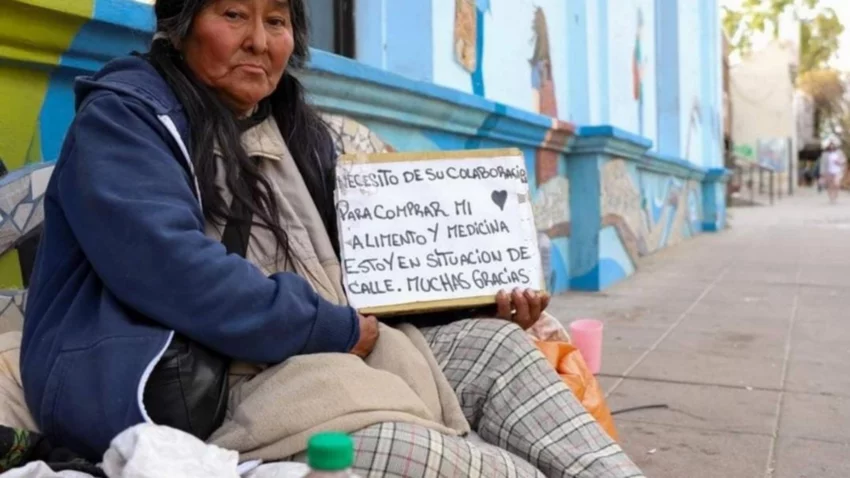 NECESITO DE SU COLABORACIÓN
PARA COMPRAR MI
ALIMENTO Y MEDICINA
ESTOY EN SITUACION DE
CALLE. MUCHAS GRACIAS